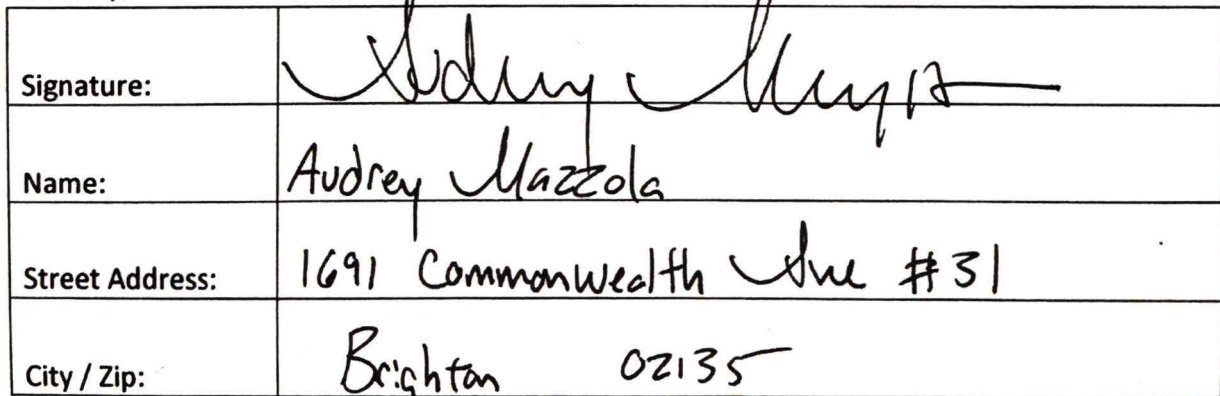 Signature: Audrey
Name: Audrey Mazzola
Street Address: 1691 Commonwealth Ave #31
City / Zip: Brighton 02135